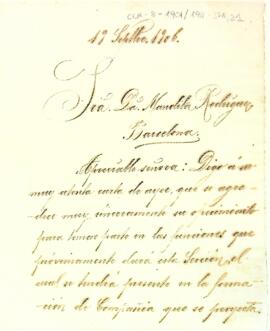 19 Setbre. 1906.
Sra. Da. Manolita Rodriguez
Barcelona.
Apreciable señora: Digo á su
muy atenta carta de ayer, que se agra-
dece muy sinceramente su ofrecimiento
para tomar parte en las funciones que
proximamente dará esta Sección, el
cual se tendrá presente en la forma-
ción de Compañia que se proyecta.